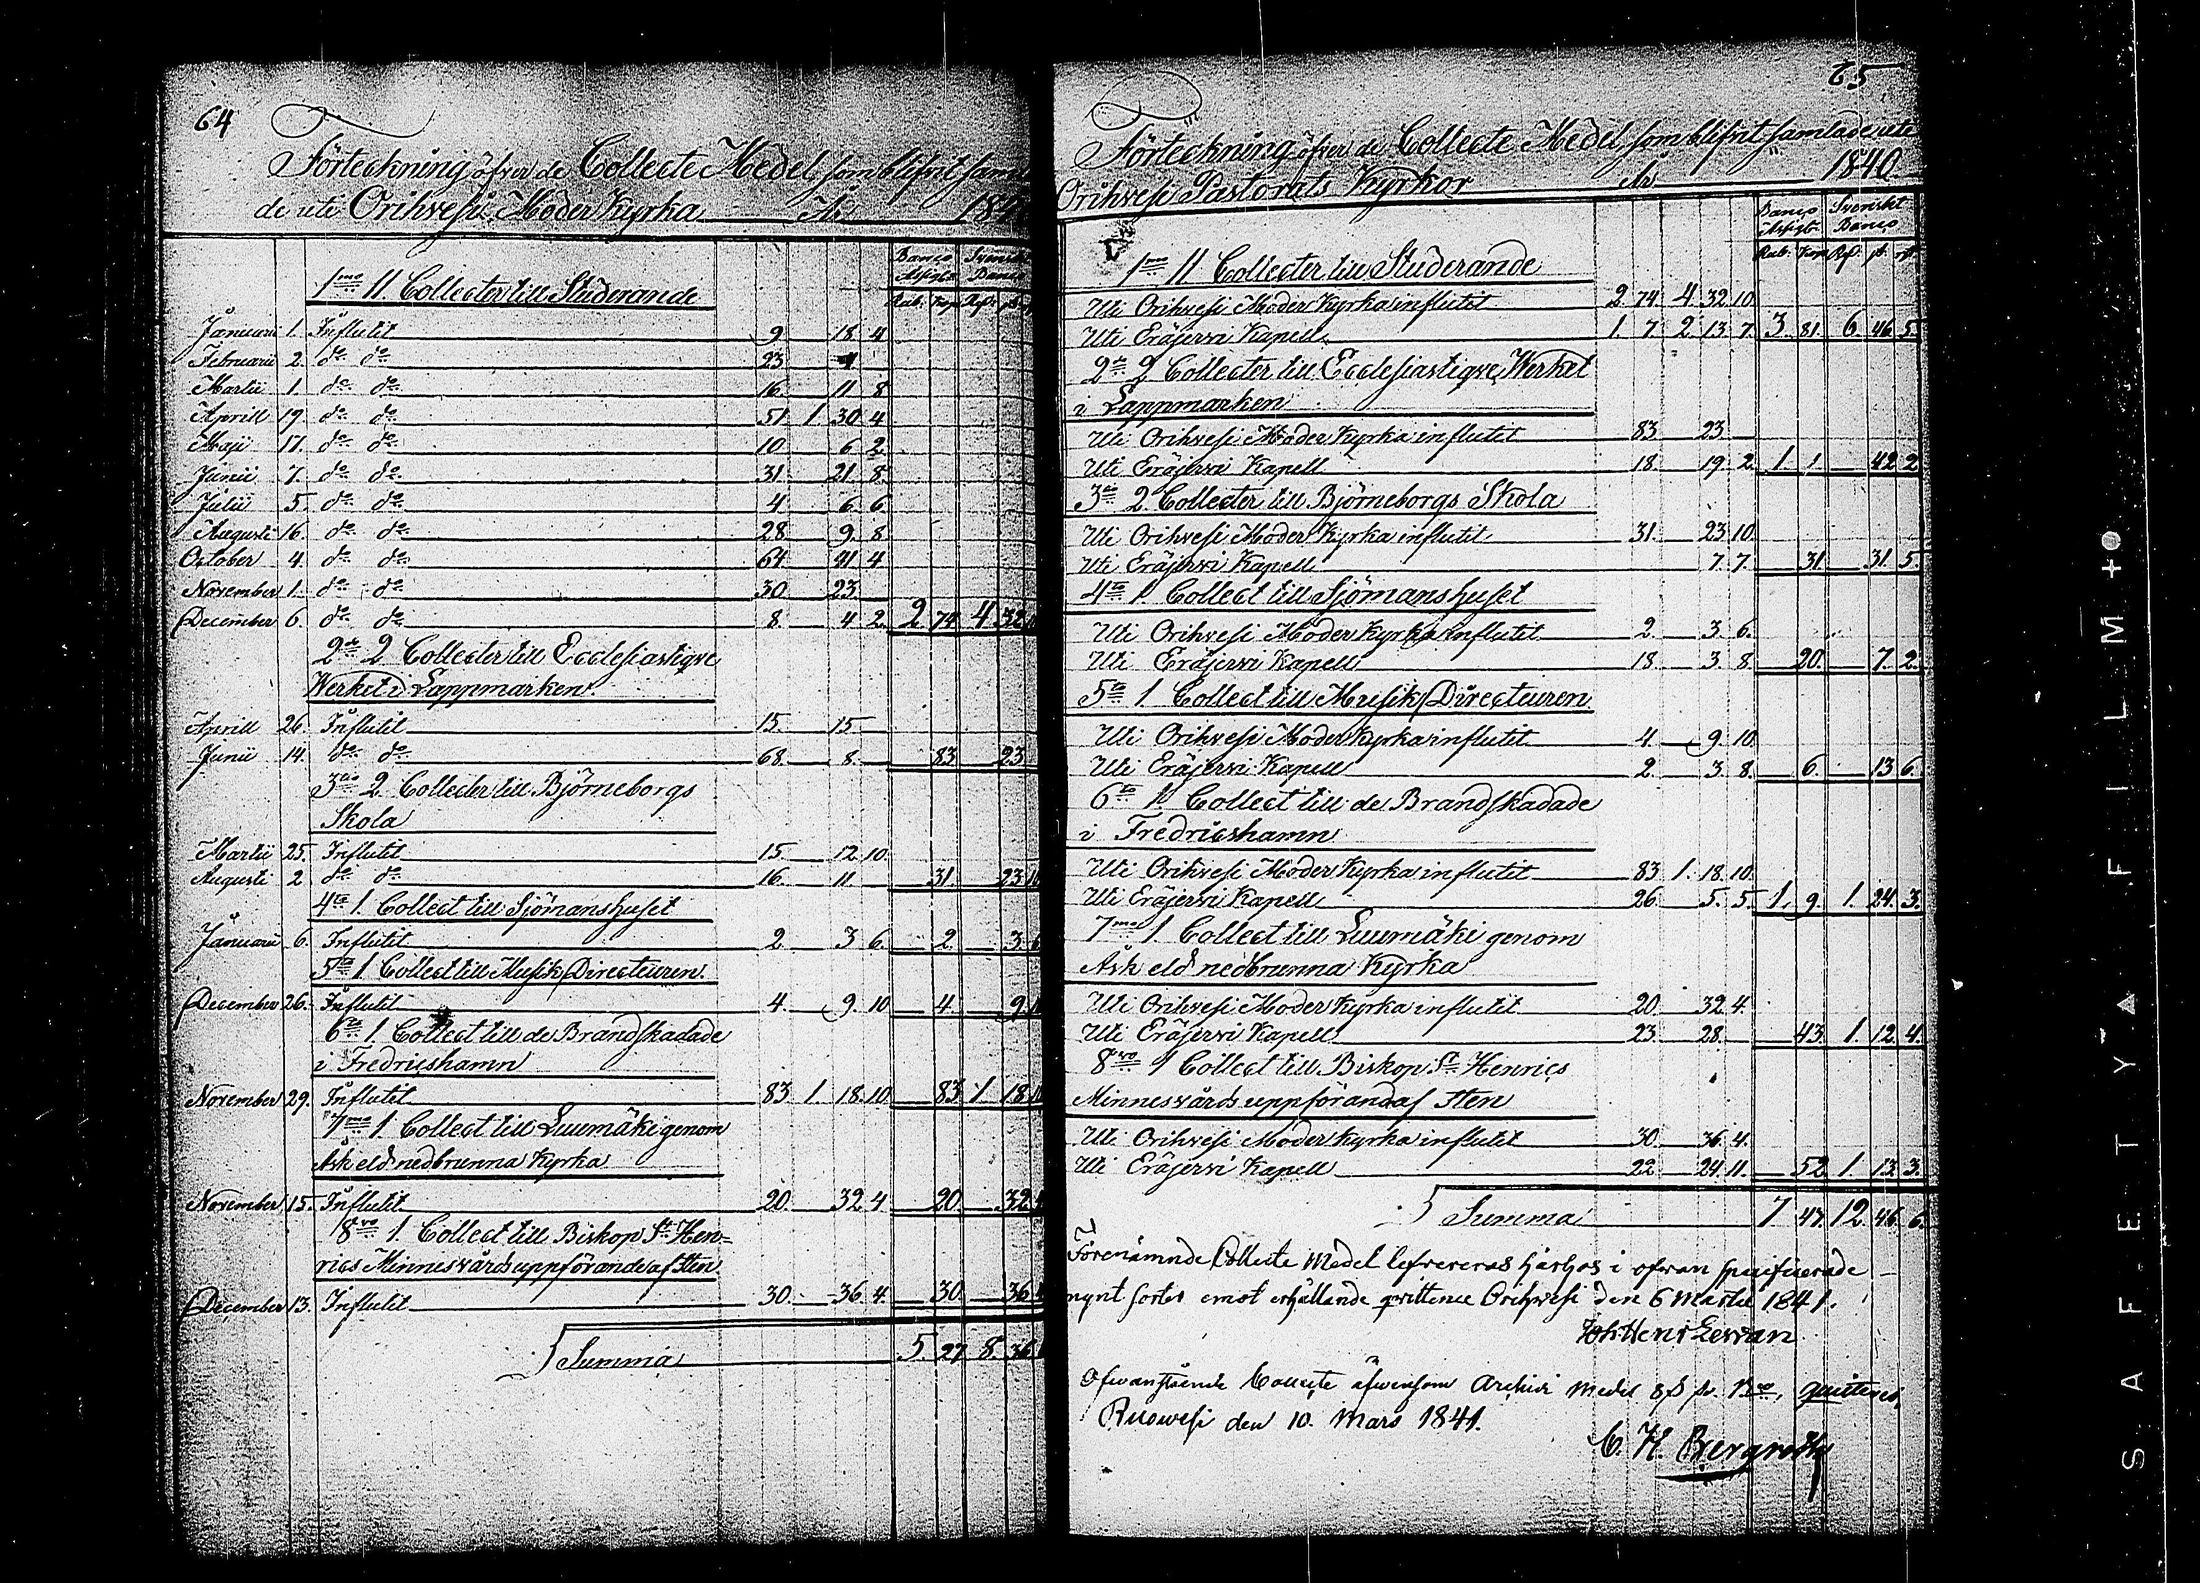 64
Förteckning öfver de Collecte Medel som blifvit samla
de uti Orihvesi Moder Kyrka År 184
Banco Assigts Svenskt Banco
Rub. Kop. Rd. sk. rst.
1mo 11 Collecter till Studerande
Januarii 1. Influtit 9 18 4
Februarii 2. do do 23 4
Martii 1. do do 16. 11 8
Aprill 19. do do 51 1 30 4
Maji 17. do do 10 6 2
Junii 7. do do 31. 21 8.
Julii 5. do do 4 6 6
Augusti 16. do do 28 9. 8
October 4. do do 64 41 4
November 1. do do 30 23
December 6. do do 8. 4 2. 2 74 4 32 10
2do 2 Collecter till Ecclesiastiqve
Werket i Lappmarken
Aprill 26. Influtit 15. 15
Junii 14. do do 68. 8. 83 23
3tio 2. Collecter till Björneborgs
Skola
Martii 25. Influtit 15. 12 10
Augusti 2 do do 16. 11 31 23 10
4to 1. Collect till Sjömanshuset
Januarii 6. Influtit 2 3 6. 2 3. 6
5to 1 Collect till Musik Directeuren.
December 26. Influtit 4. 9. 10 4. 9 10
6to 1. Collect till de Brandskadade
i Fredricshamn
November 29. Influtit 83 1 18. 10 83 1 18 10
7mo 1. Collect till Luumäki genom
Åsk eld nedbrunna Kyrka
November 15. Influtit 20. 32 4 20 32 4
8vo 1. Collect till Biskop St Hen=
rics Minnesvårds uppförande af Sten
December 13. Influtit 30. 36 4. 30. 36 4
Summa 5. 27 8. 36 1
65
Förteckning öfver de Collecte Medel som blifvit samlade uti
Orihvesi Pastorats Kyrkor År 1840
Banco Assigt. Svenskt Banco
Rub. Kop. Rd. sk. rst.
1mo 11 Collecter till Studerande
Uti Orihvesi Moder Kyrka influtit 2 74 4 32 10
Uti Eräjervi Kapell 1. 7 2 13 7 3 81. 6. 46 5.
2do 2 Collecter till Ecclesiastiqve Werket
i Lappmarken
Uti Orihvesi Moder Kyrka influtit 83 23
Uti Eräjervi Kapell 18 19 2 1. 1 42 2
3tio 2. Collecter till Björneborgs Skola
Uti Orihvesi Moder Kyrka influtit 31. 23 10
Uti Eräjervi Kapell 7 7. 31 31 5.
4to 1. Collect till Sjömanshuset
Uti Orihvesi Moder Kyrka influtit 2. 3 6.
Uti Eräjervi Kapell 18 3. 8 20. 7. 2.
5to 1 Collect till Musik Directeuren
Uti Orihvesi Moder Kyrka influtit 4 9 10
Uti Eräjervi Kapell 2. 3 8. 6. 13 6
6to 1. Collect till de Brandskadade
i Fredricshamn
Uti Orihvesi Moder Kyrka influtit 83 1. 18 10
Uti Eräjervi Kapell 26 5. 5. 1. 9. 1. 24. 3.
7mo 1. Collect till Luumäki genom
Åsk eld nedbrunna Kyrka
Uti Orihvesi Moder Kyrka influtit 20 32 4.
Uti Eräjervi Kapell 23 28. 43. 1. 12 4.
8vo 1 Collect till Biskop St Henrics
Minnesvårds uppförand af Sten
Uti Orihvesi Moder Kyrka influtit 30 36 4.
Uti Eräjervi Kapell 22 24 11. 52 1 13. 3.
Summa 7 43 12 46. 6.
Förenämnde Collecte Medel lefvereras härhos i ofvan specificerade
mynt sorter emot erhållande qvittence Orihvesi den 6 Martii 1841.
Joh: Henr Lewan
Ofvanstående Collecte äfvensom Archivi medel 8 s qvitteras,
Ruovesi den 10. Mars 1841.
C. H. Bergroth
SAFETY FILM